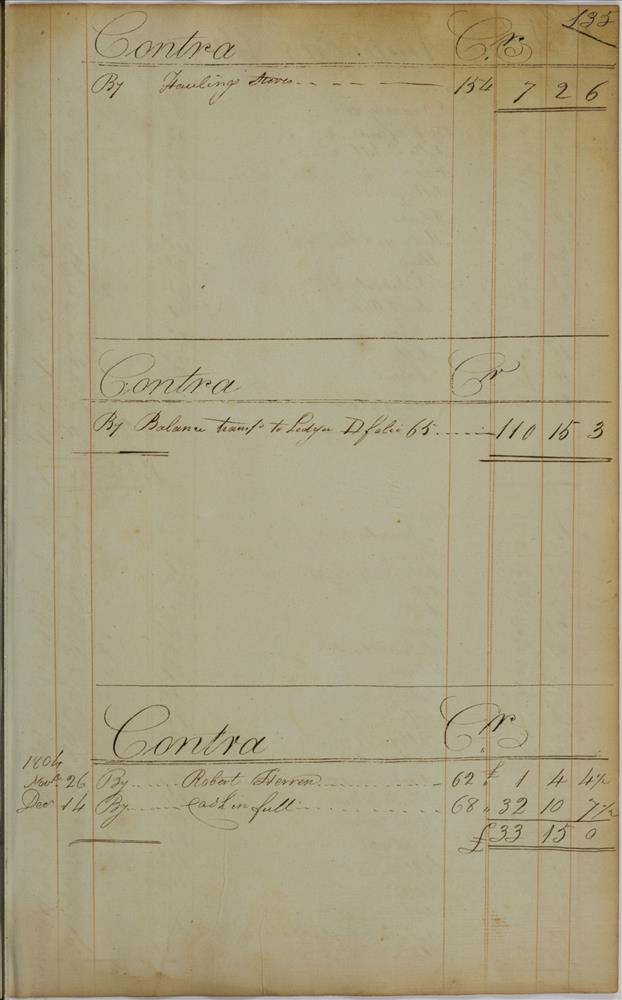 Contra Cr 132
By Hauling Stoves 154 7 2 6
Contra Cr
By Balance transf.d to Ledger D folio 65 110 15 3
Contra Cr
1804
Novr 26 By Robert Herren 62 £ 1 4 4½
Decr 14 By Cash in full 68 " 32 10 7½
£ 33 15 0